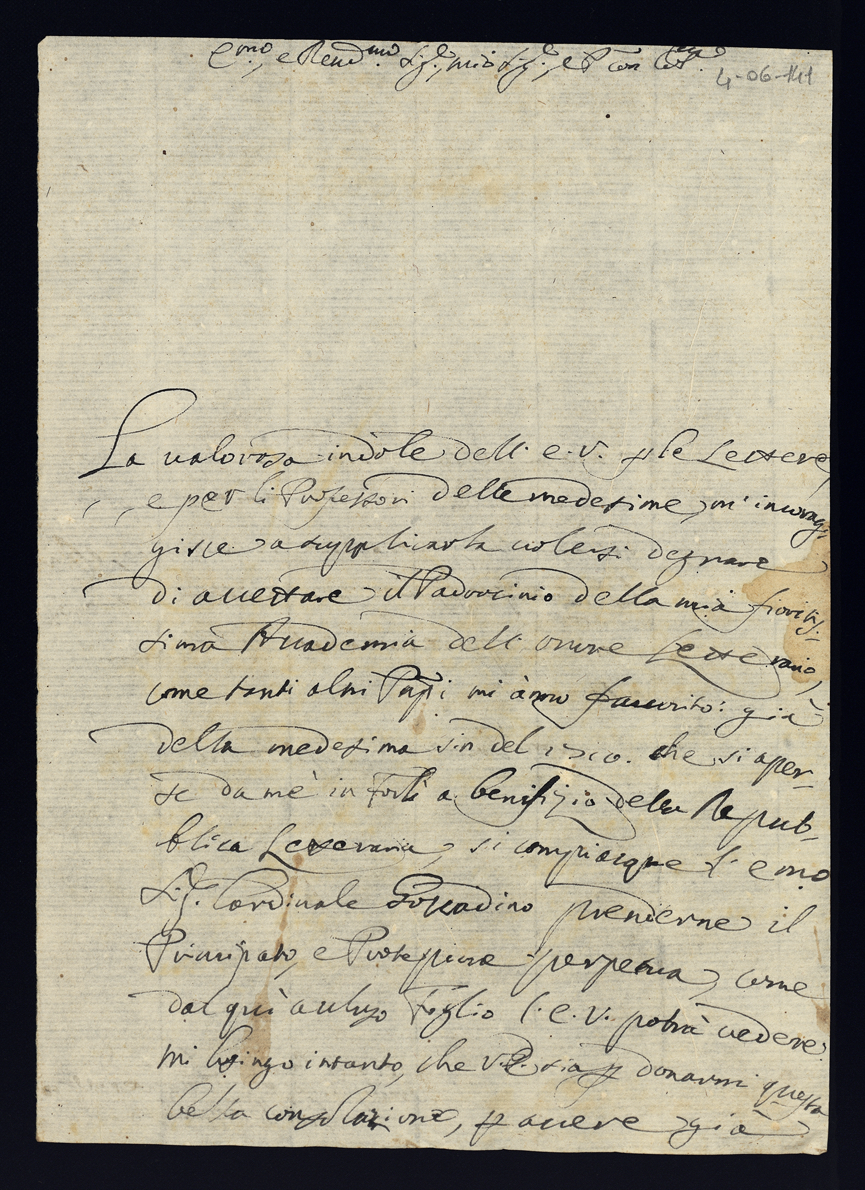 Emo, e Rendmo Sig.e, mio Sig.e, e Pron Col.mo
4-06-141
La valorosa indole dell' e. v. p le Lettere,
e per li Professori delle medesime, m' incorag-
gisce a supplicarla volersi degnare
di accettare il Padrocinio della mia fioritis-
sima Accademia dell' onore Letterario,
come tanti altri Papi mi ànno favorito: già
della medesima sin del che si aper-
se da mè in Forlì a benifizio della Repub-
blica Letteraria, si compiacque l' emo
Sig.e Cardinale Gozzadino prenderne il
Principato, e Protezione perpetua, come
dal quì acluso Foglio l' e. V. potrà vedere:
mi lusingo intanto, che V.E. sia p donarmi questa
bella consolazione, p avere già